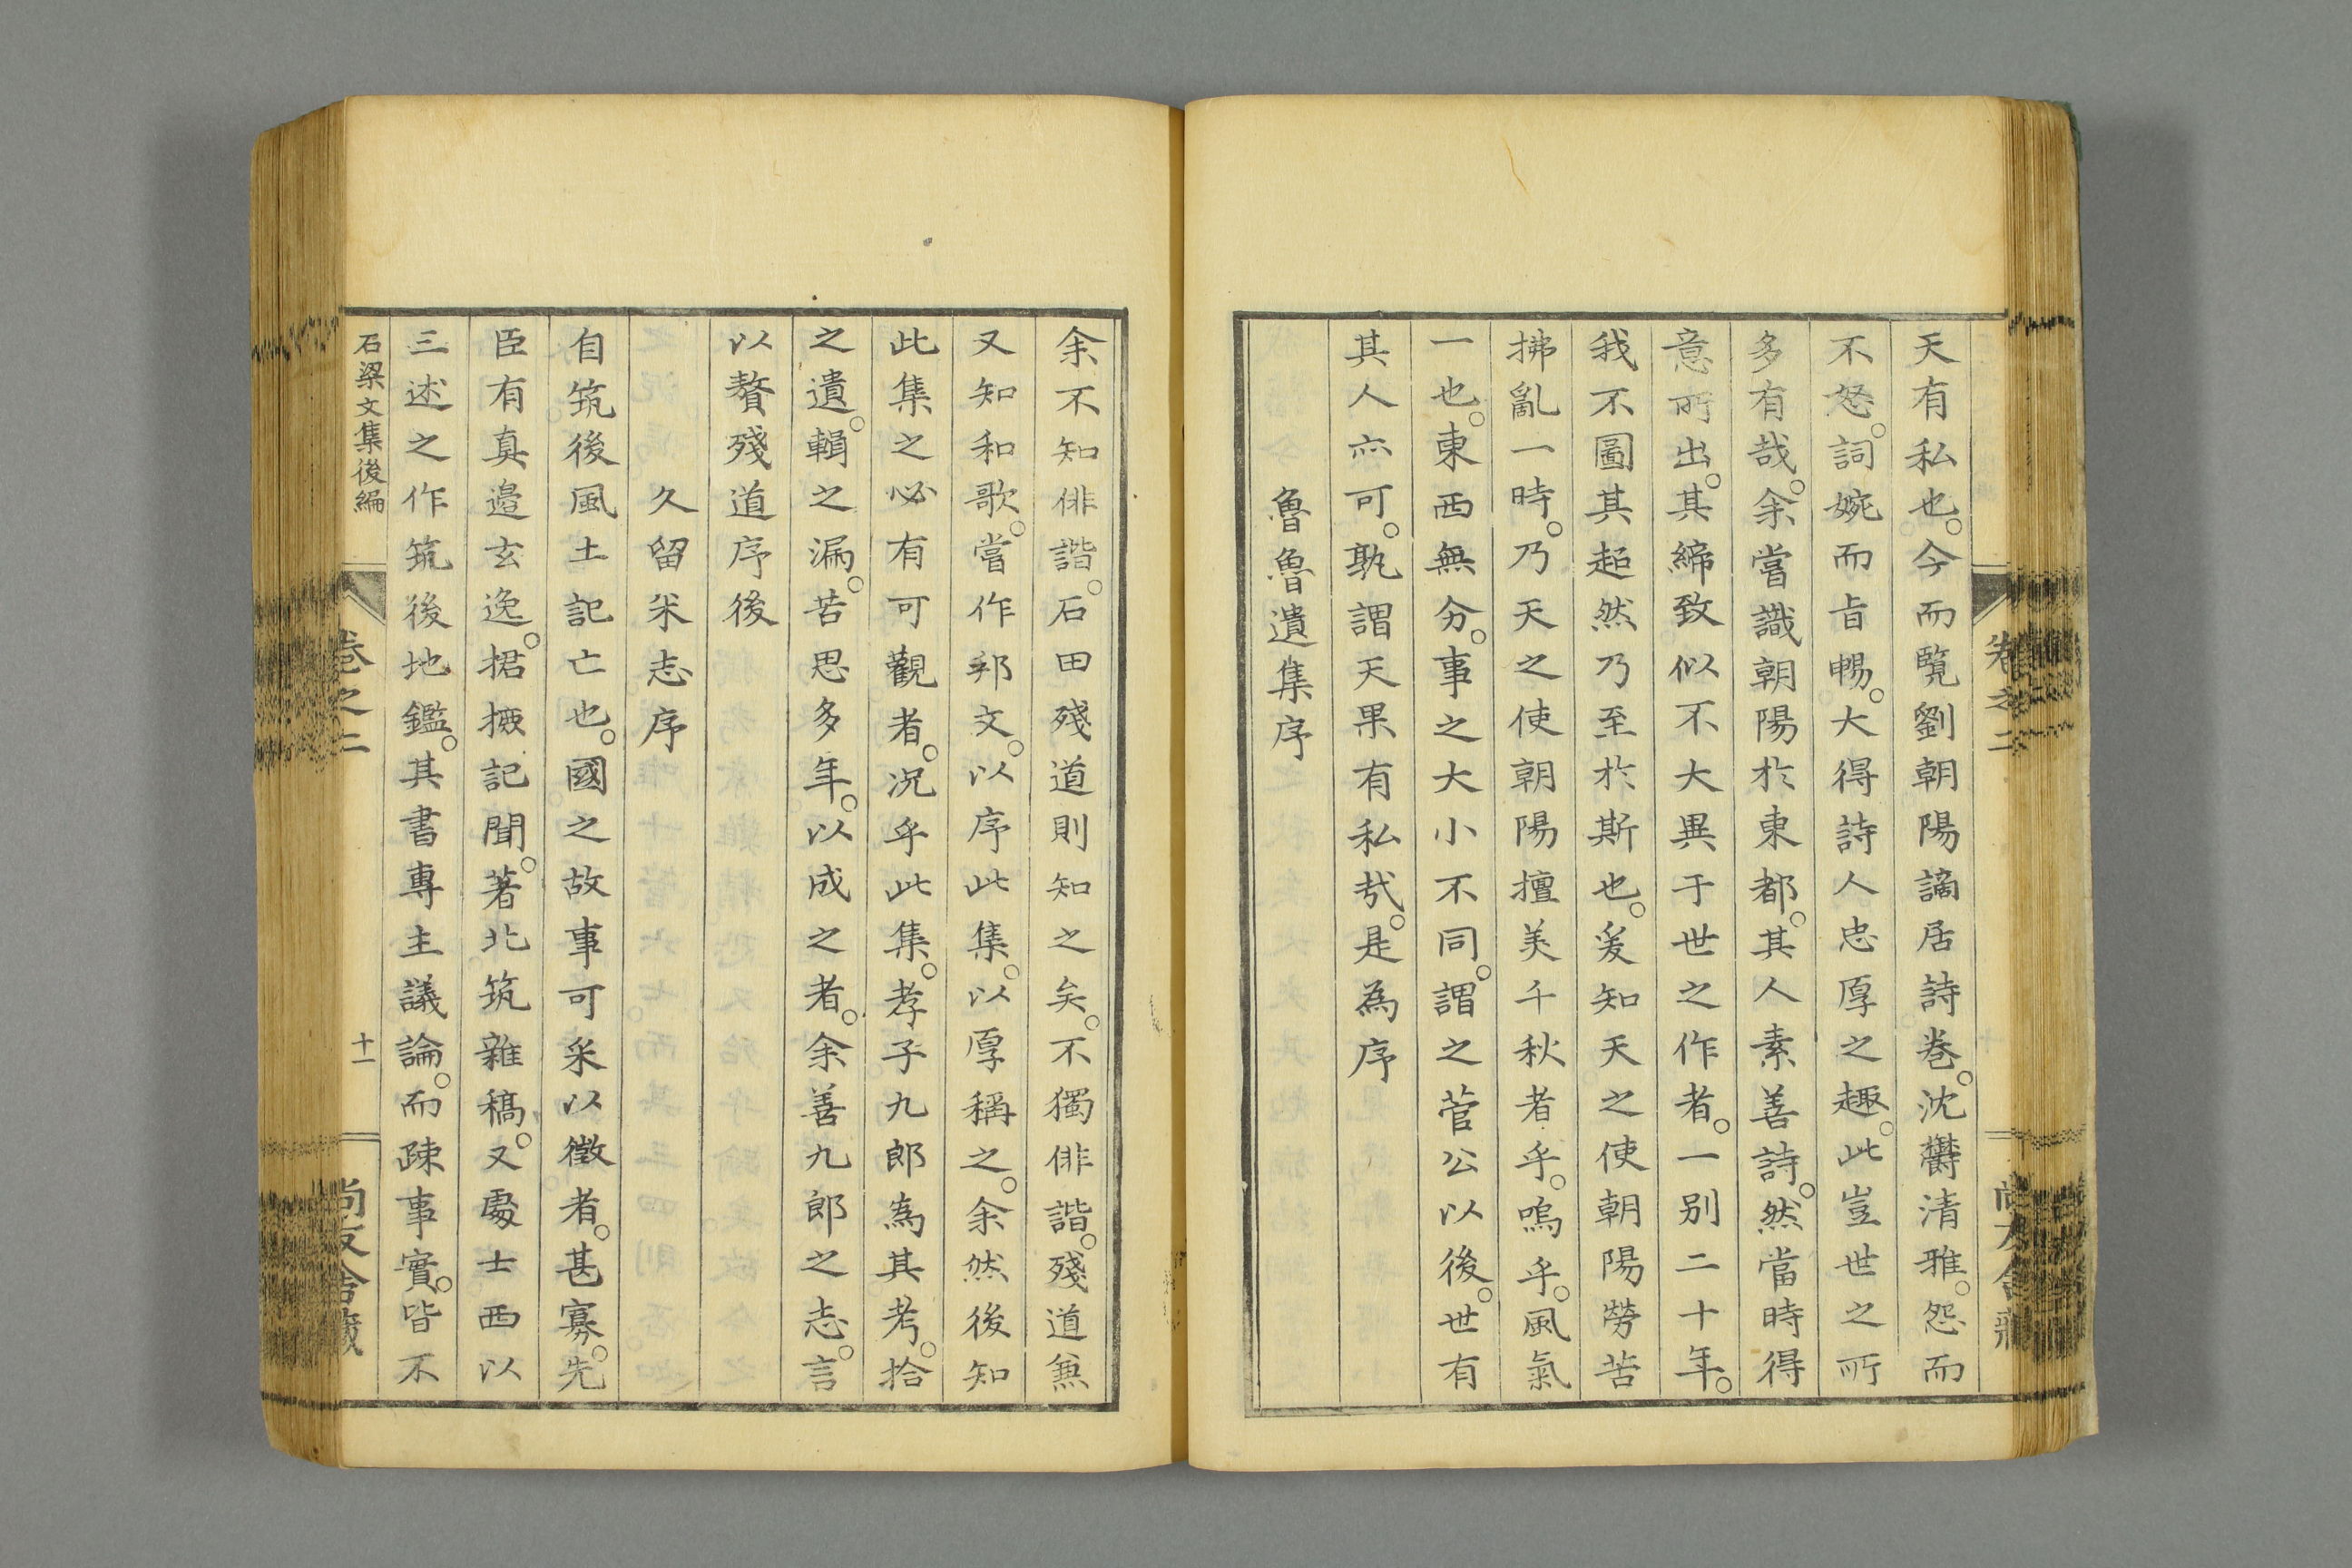 天有私也。今而覽劉朝陽謫居詩巻。沈欝清雅。怨而
不怒。詞婉而旨暢。大得詩人忠厚之趣。此豈世之所
多有哉。余嘗識朝陽於東都。其人素善詩。然當時得
意所出。其締致似不大異于世之作者。一别二十年。
我不圖其超然乃至於斯也。爰知天之使朝陽勞苦
拂亂一時。乃天之使朝陽擅美千秋者乎。嗚乎。風氣
一也。東西無分。事之大小不同。謂之菅公以後。世有
其人亦可。孰謂天果有私哉。是為序
魯魯遺集序
余不知俳諧。石田殘道則知之矣。不獨俳諧。殘道兼
又知和歌。嘗作邦文。以序此集。以厚稱之。余然後知
此集之必有可觀者。况乎此集。孝子九郎為其考。拾
之遺。輯之漏。苦思多年。以成之者。余善九郎之志。言
以贅殘道序後
久留米志序
自筑後風土記亡也。國之故事可采以徵者。甚寡。先
臣有真邉玄逸。捃摭記聞。著北筑雜稿。又處士西以
三述之作筑後地鑑。其書專主議論。而疎事實。皆不
石梁文集後編
卷之二
十一
卷之二